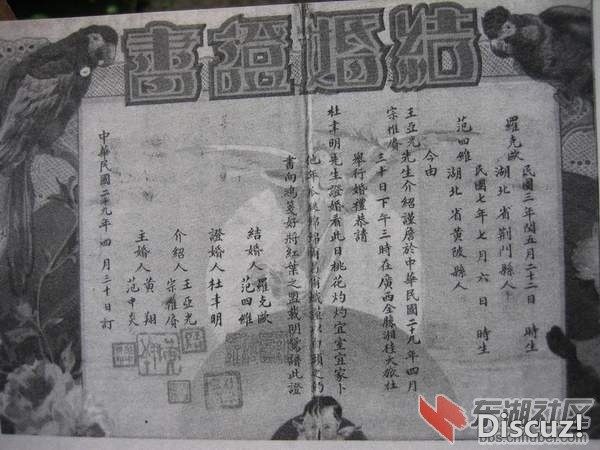 結婚證書
民國三年閏五月二十二日 時生
羅克歐 湖北省荆門縣人
民國七年七月六日 時生
范四維 湖北省黄陂縣人
今由
王亞光
宋雅 先生介紹謹詹於中華民國二十九年四月
三十日下午三時在廣西全縣湘桂大旅社
舉行婚禮恭請
杜聿明先生證婚看此日桃花灼灼宜室宜家卜
他年瓜瓞綿綿爾昌爾熾謹以白頭之約
書向鴻箋好將紅葉之盟載明鴛譜此證
結婚人 羅克歐
范四維
證婚人 杜聿明
介紹人 王亞光
宋雅
主婚人 黄翔
范中炎
中華民國二十九年四月三十日訂
东湖社区
bbs.cnhubei.com
Discuz!